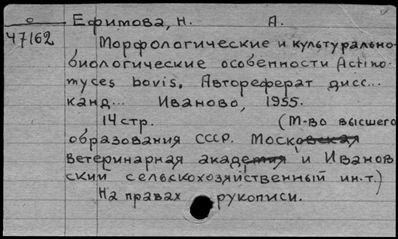 Ефимова, Н. А.
47162
Морфологические и культурально-
биологические особенности Actino-
myces bovis. Автореферат дисс...
канд... Иваново, 1955.
14 стр. (М-во высшего
образования СССР. Московская
ветеринарная академия и Иванов
ский сельскохозяйственный ин-т.)
На правах рукописи.